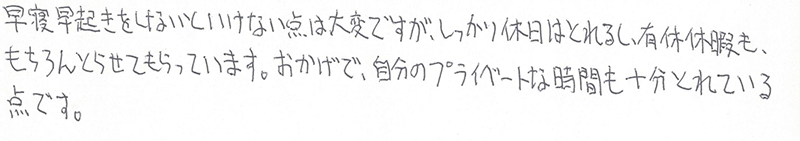 早寝早起きをしないといけない点は大変ですが、しっかり休日はとれるし、有休休暇も、
もちろんとらせてもらっています。おかげで、自分のプライベートな時間も十分とれている
点です。